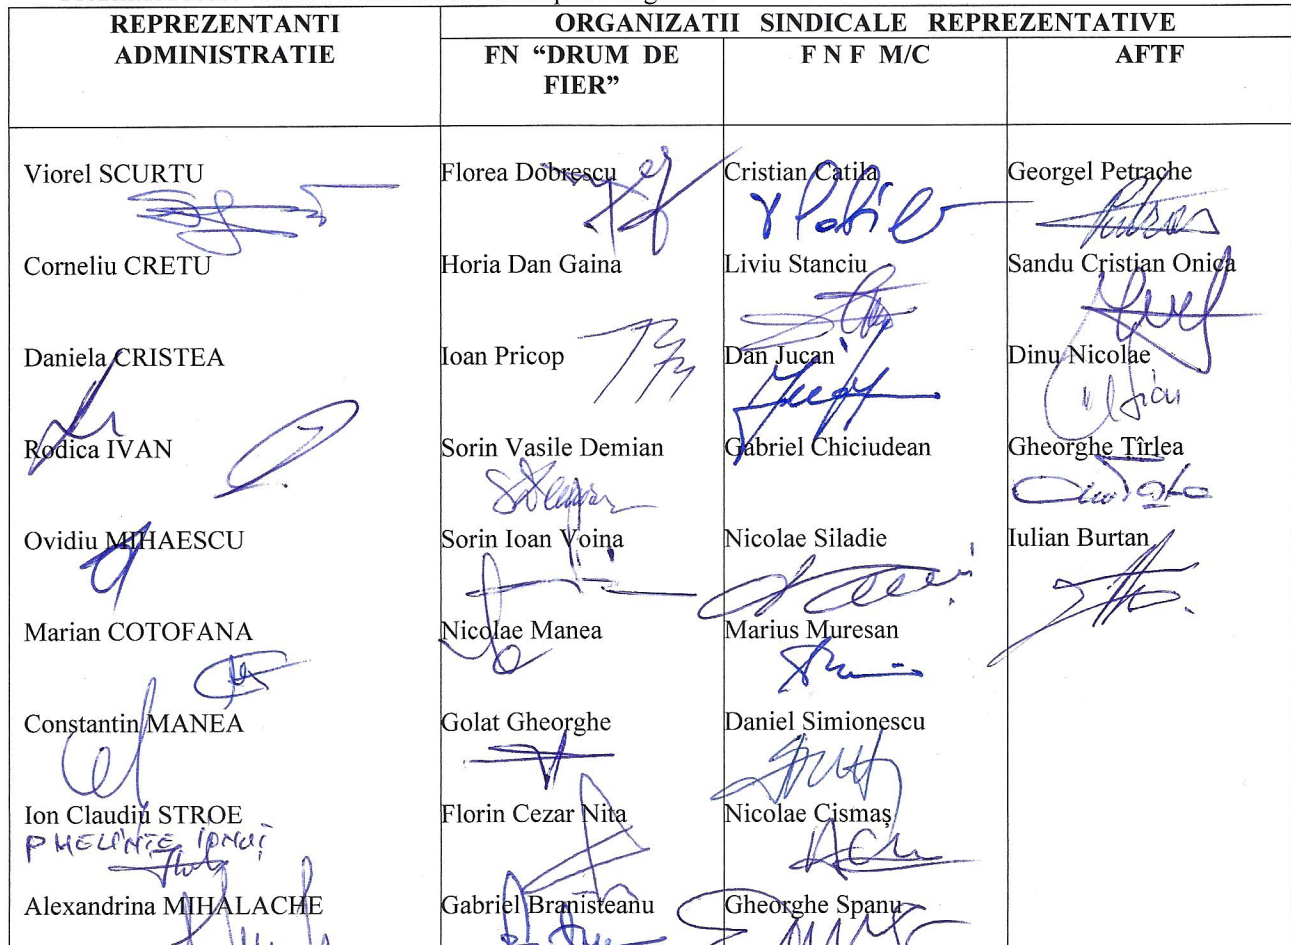 REPREZENTANTI ADMINISTRATIE
ORGANIZATII SINDICALE REPREZENTATIVE
FN “DRUM DE FIER”
F N F M/C
AFTF
Viorel SCURTU
Florea Dobrescu
Cristian Catila
Georgel Petrache
Corneliu CRETU
Horia Dan Gaina
Liviu Stanciu
Sandu Cristian Onica
Daniela CRISTEA
Ioan Pricop
Dan Jucan
Dinu Nicolae
Rodica IVAN
Sorin Vasile Demian
Gabriel Chiciudean
Gheorghe Țîrlea
Ovidiu MIHAESCU
Sorin Ioan Voina
Nicolae Siladie
Iulian Burtan
Marian COTOFANA
Nicolae Manea
Marius Muresan
Constantin MANEA
Golat Gheorghe
Daniel Simionescu
Ion Claudiu STROE
Florin Cezar Nita
Nicolae Cismaș
Alexandrina MIHALACHE
Gabriel Branisteanu
Gheorghe Spanu